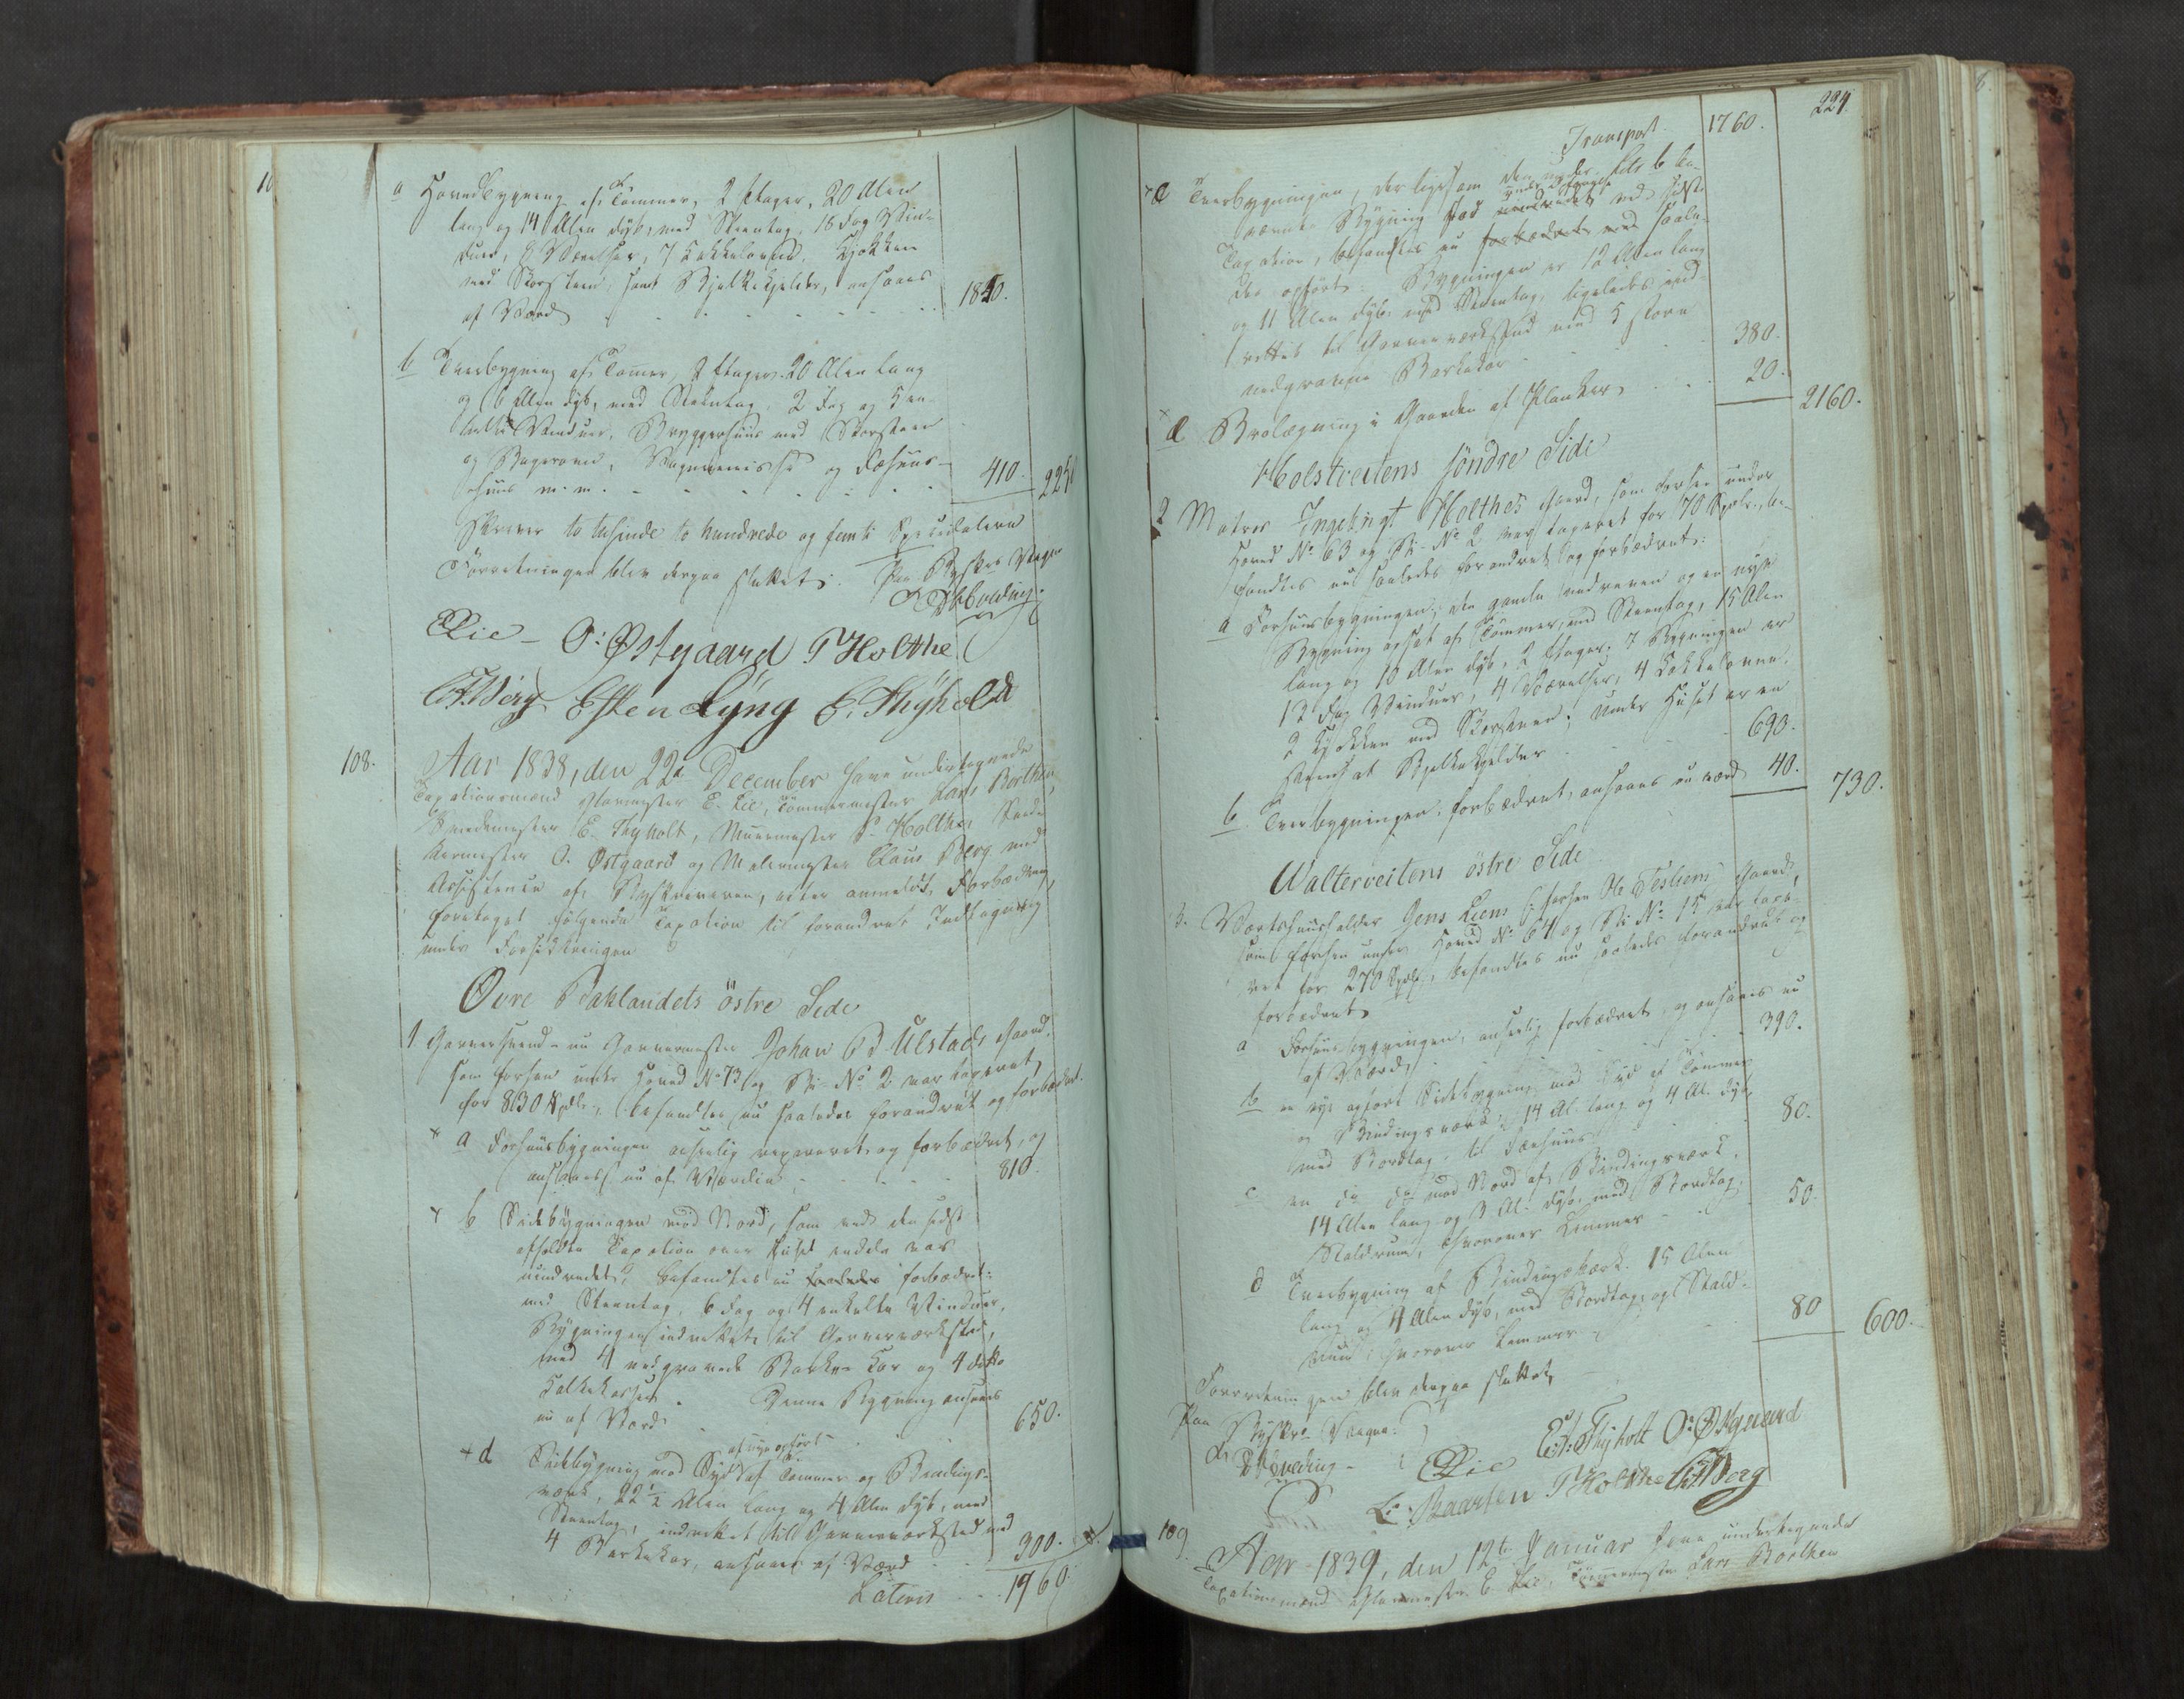 a Hovedbygning af Tømmer, 2 Etager, 20 Alen
lang og 14 Alen dyb, med Steentag, 18 Fag Vin-
duer, 8 Værelser, 7 Kakkelovne, Kjøkken
med Skorsteen, samt Bjelkekjelder, ansaaes
af Værd 1840.
b Tverbygning af Tømmer, 2 Etager, 20 Alen lang
og 6 Alen dyb, med Steentag, 2 Fag og 5 en-
kelte Vinduer, Bryggerhuus med Skorsteen
og Bagerovn, Vognremisse og Fæhuus-
huus m. m. 410. 225
Skriver to tusinde to hundrede og femti Speciedalere
Forretningen blev derpaa sluttet.
Paa Byskr Vegne
ELie - O: Østgaard P Holthe
CABerg Esten Lyng E. Thyholdt
108. Aar 1838, den 22de December have undertegnede
Taxationsmænd Glarmester E. Lie, Tømmermester Lars Borthen,
Smedemester E. Thyholt, Muurmester P. Holthe, Sned-
kermester O. Østgaard og Malermester Claus Berg med
Assistence af Byskriveren, efter anmeldt Forbedring
foretaget følgende Taxation til forandret Indtegning
under Forsikkringen
Øvre Baklandets östre Side
1 Garversvend - nu Garvermester Johan B Ulstads Gaard,
som forhen under Hoved No 73 og Bi-No 2 var taxeret
for 830 Spdlr, befandtes nu saaledes forandret og forbedret.
a Forhuusbygningen anseelig repareret og forbedret, og
ansaaes nu af Værdie 810.
b Sidebygningen mod Nord, som ved den sidst
afholdte Taxation over Huset endda var
uindredet, befandtes nu saaledes forbedret:
med Steentag, 6 Fag og 4 enkelte Vinduer,
Bygningen indrettet til Garverværksted,
med 4 nedgravede Barke Kar og 4 ditto
Kalkekasser. Denne Bygning ansaaes
nu af Værd 650.
af nye opført
d Sidebygning mod Syd af Tømmer og Bindings-
værk, 22 1/2 Alen lang og 4 Alen dyb, med
Steentag, indrettet till Garverværksted med
4 Barkekar, ansaaes af Værd 300.
Lateris 1960.
224.
Transport 1760.
Tverbygningen, der ligesom den under Litr b be-
nævnte Bygning stod under Forrige ved sidste
Taxation, befandtes nu forbedret med saale-
des opført: Bygningen er 12 Alen lang
og 11 Alen dyb, med Steentag, ligeledes ind-
rettet til Garverværksted med 5 store
nedgravne Barkekar 380.
Brolægning i Gaarden af Planker 20. 2160.
Holstveitens söndre Side
2 Matros Ingebrigt Holthes Gaard, som forhen under
Hoved No 63 og Bi-No 2 var taxeret for 70 Spdlr., be-
fandtes nu saaledes forandret og forbedret:
a Forhuusbygningen, den gamle nedreven og en nye
Bygning opsat af Tømmer, med Steentag, 15 Alen
lang og 10 Alen dyb, 2 Etager. I Bygningen er
12 Fag Vinduer, 4 Værelser, 4 Kakkelovne,
2 Kjøkken med Skorsteen; under Huset er en
steensat Bjelkekjelder 690.
b Tverbygningen, forbedret, ansaaes nu værd 40. 730.
Walterveitens östre Side
3. Værtshuusholder Jens Liens forhen Ole Jestiens Gaard,
som forhen under Hoved No 64 og Bi No 15 var taxe-
ret for 270 Spdlr, befandtes nu saaledes forandret og
forbedret
a Forhuusbyggningen, anseelig forbedret, og ansaaes nu
af Værd 390.
b en nye opført Sidebygning mod Syd af Tømmer
og Bindingsværk, 14 Al. lang og 4 Al. dyb,
med Bordtag, til Fæhuus 80.
c en do do mod Nord af Bindingsværk,
14 Alen lang og 3 Al. dyb, med Bordtag,
Staldrum, hvorover Lemmer 50.
d Tverbygning af Bindingsværk, 15 Alen
lang og 4 Alen dyb, med Bordtag, og Stald-
rum, hvorover Lemmer 80 600.
Forretningen blev derpaa sluttet,
Paa Byskrs Vegne
ELie E. Thyholt O: Østgaard
L. Baarten P Holthe CABerg
109. Aar 1839, den 12te Januar have undertegnede
Taxationsmænd Glarmester E. Lie, Tømmermester Lars Borthen